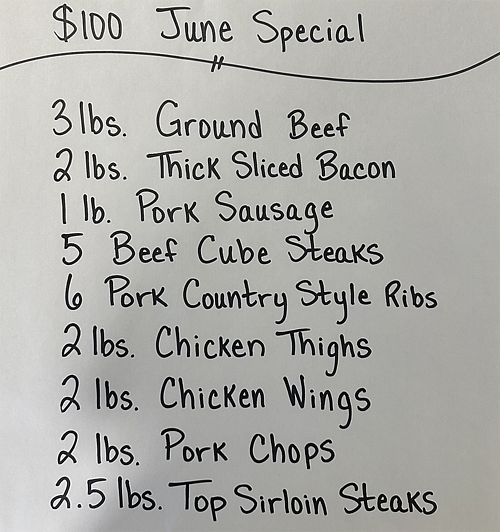 $100 June Special
3 lbs. Ground Beef
2 lbs. Thick Sliced Bacon
1 lb. Pork Sausage
5 Beef Cube Steaks
6 Pork Country Style Ribs
2 lbs. Chicken Thighs
2 lbs. Chicken Wings
2 lbs. Pork Chops
2.5 lbs. Top Sirloin Steaks